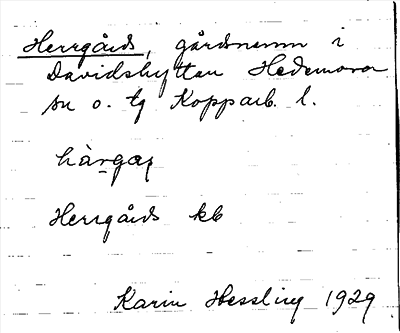 Herrgårds, gårdsnamn i
Davidshyttan Hedemora
sn o. tg Kopparb. l.
hàrgaṣ
Herrgårds kb
Karin Hessling 1929